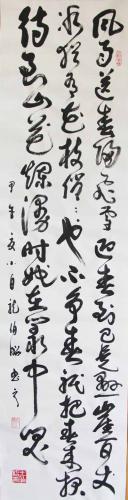 风雨送春归飞雪迎春到已是悬崖百丈
冰犹有花枝俏俏也不争春只把春来报
待到山花烂漫时她在丛中笑
甲午